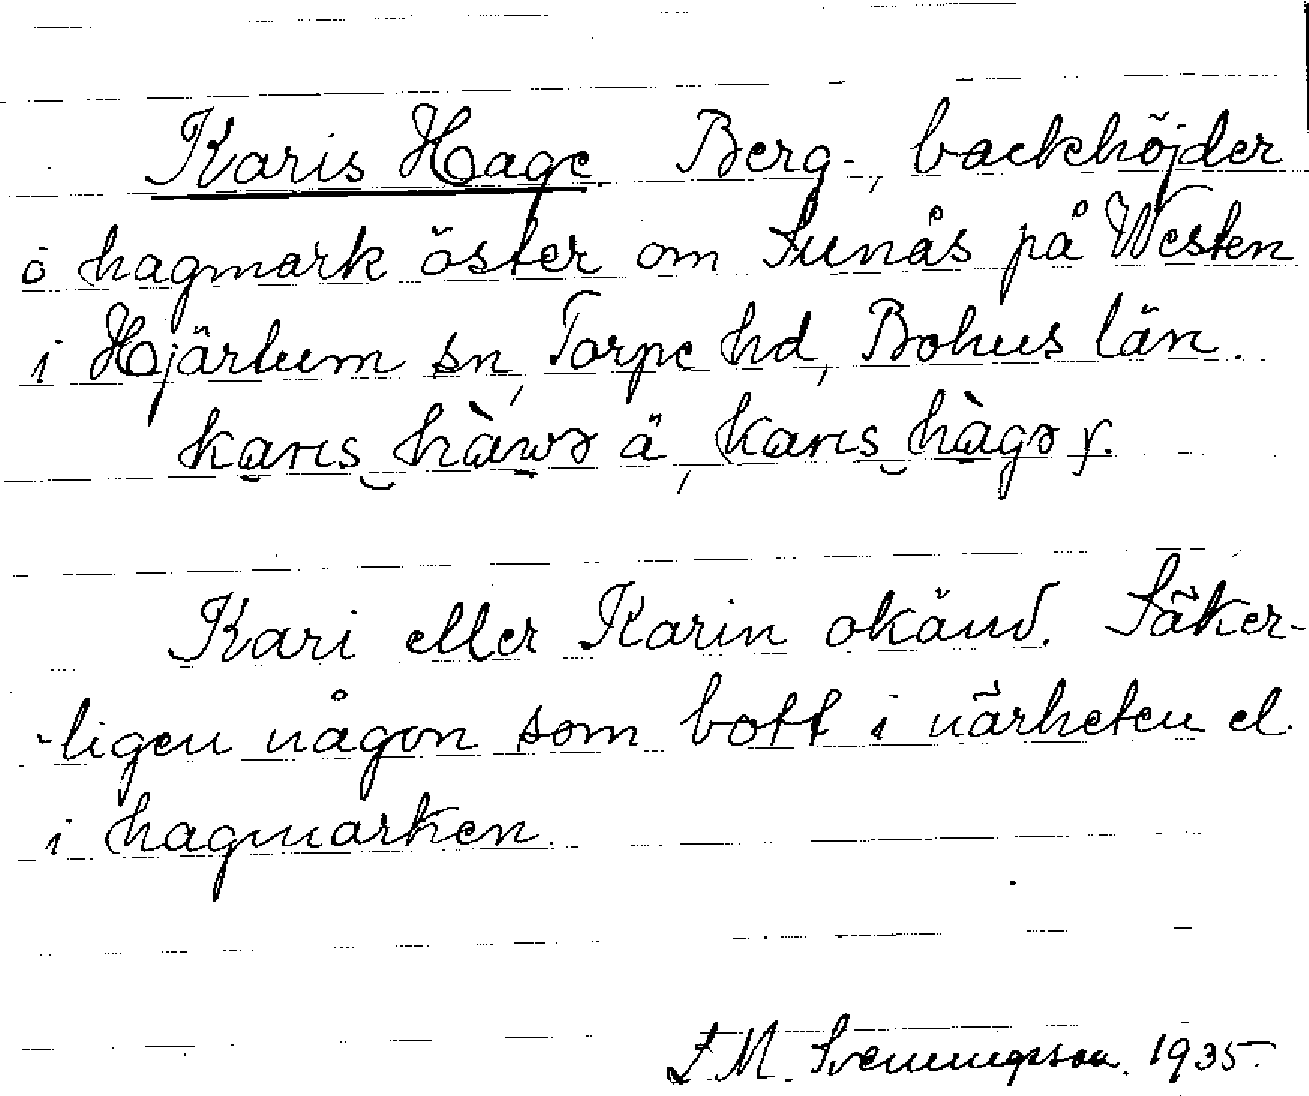 Karis Hage Berg-, backhöjder
o hagmark öster om Sunås på Westen
i Hjärtum sn, Torpe hd, Bohus län.
karıs hàwə ä, karıs hàgə y.
Kari eller Karin okänd. Säker-
-ligen någon som bott i närheten el.
i hagmarken.
L M. Svenningsson. 1935.